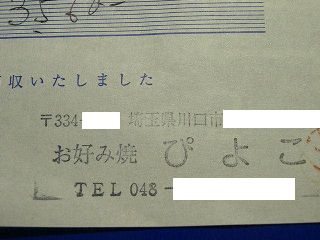 収いたしました
〒334- 埼玉県川口市
お好み焼 ぴよこ
TEL 048-